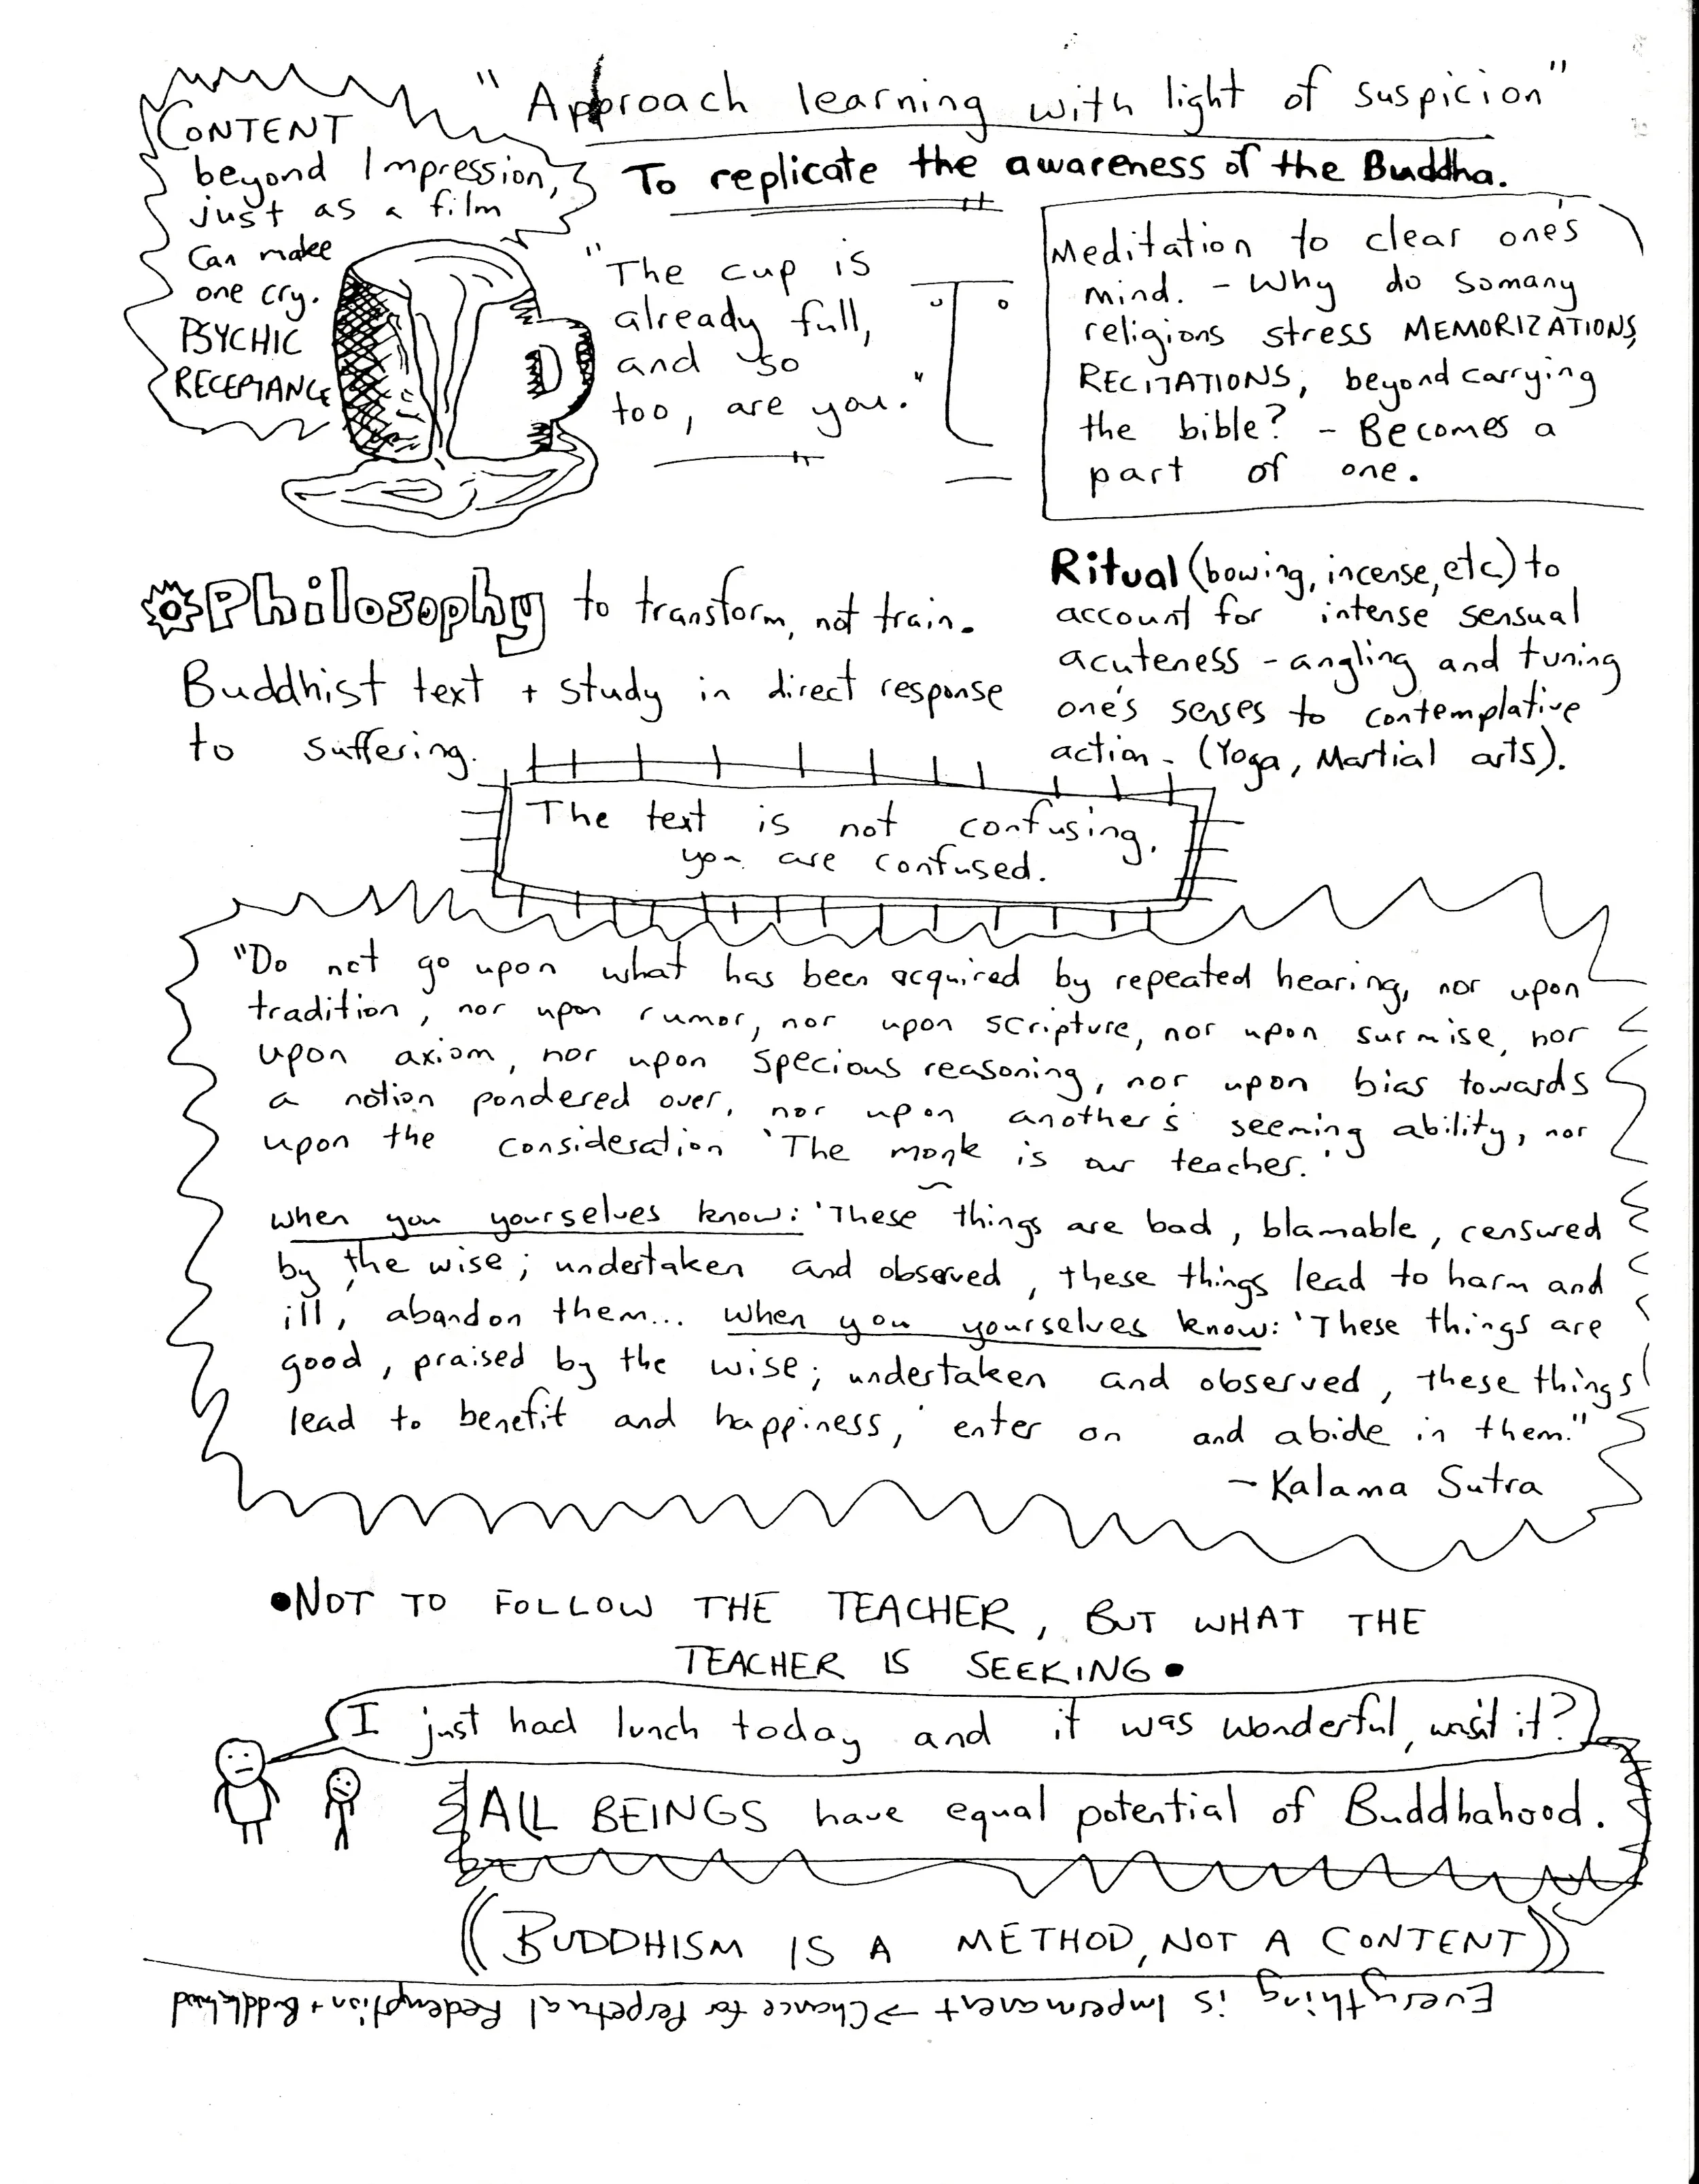 "Approach learning with light of suspicion"
To replicate the awareness of the Buddha.
CONTENT
beyond Impression,
just as a film
Can make
one cry.
PSYCHIC
RECEPTANCE
"The cup is
already full,
and so
too, are you."
Meditation to clear one's
mind. - Why do so many
religions stress MEMORIZATIONS,
RECITATIONS, beyond carrying
the bible? - Becomes a
part of one.
Philosophy to transform, not train.
Buddhist text + study in direct response
to suffering.
Ritual (bowing, incense, etc) to
account for intense sensual
acuteness - angling and tuning
one's senses to contemplative
action - (Yoga, Martial arts).
The text is not confusing,
you are confused.
"Do not go upon what has been acquired by repeated hearing, nor upon
tradition, nor upon rumor, nor upon scripture, nor upon surmise, nor
upon axiom, nor upon specious reasoning, nor upon bias towards
a notion pondered over, nor upon another's seeming ability, nor
upon the consideration 'The monk is our teacher.'
When you yourselves know: 'These things are bad, blamable, censured
by the wise; undertaken and observed, these things lead to harm and
ill, abandon them... When you yourselves know: 'These things are
good, praised by the wise; undertaken and observed, these things
lead to benefit and happiness,' enter on and abide in them."
- Kalama Sutra
•NOT TO FOLLOW THE TEACHER, BUT WHAT THE
TEACHER IS SEEKING•
I just had lunch today and it was wonderful, wasn't it?
ALL BEINGS have equal potential of Buddhahood.
((BUDDHISM IS A METHOD, NOT A CONTENT))
Everything is Impermanent → Chance for Perpetual Redemption + Buddhahood